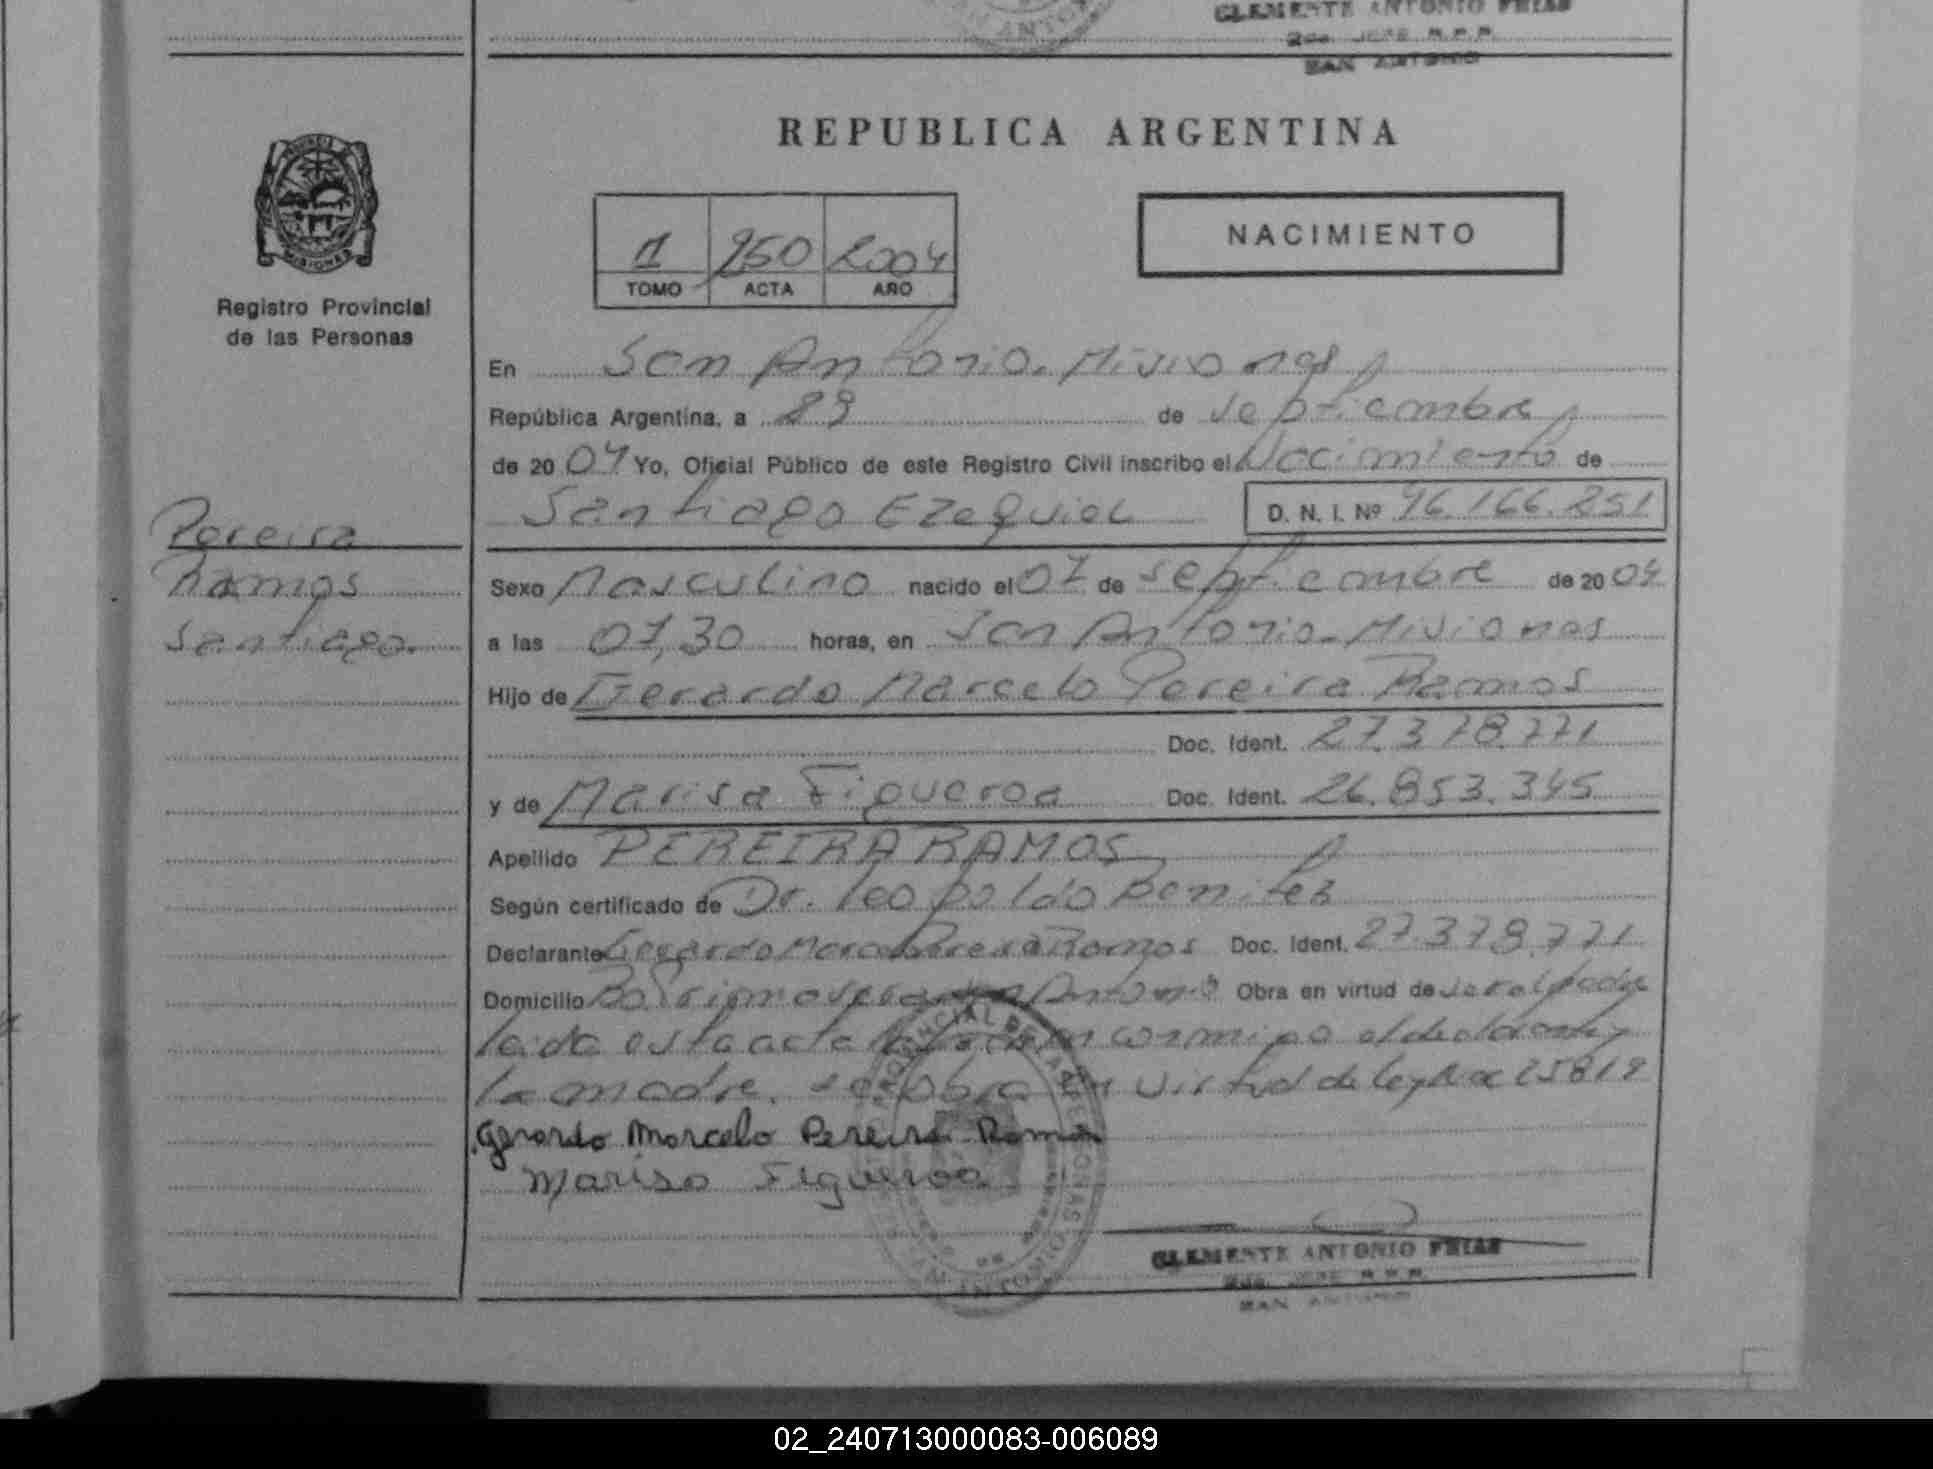 CLEMENTE ANTONIO FRIAS
2do. JEFE R.P.P.
SAN ANTONIO
PROVINCIA
MISIONES
Registro Provincial
de las Personas
REPUBLICA ARGENTINA
1 250 2004
TOMO ACTA AÑO
NACIMIENTO
En San Antonio. Misiones
República Argentina, a 29 de septiembre
de 2004 Yo, Oficial Público de este Registro Civil inscribo el Nacimiento de
Santiago Ezequiel D. N. I. Nº 96.166.251
Pereira
Ramos
Santiago.
Sexo Masculino nacido el 07 de septiembre de 2004
a las 07,30 horas, en San Antonio. Misiones
Hijo de Gerardo Marcelo Pereira Ramos
Doc. Ident. 27.378.771
y de Marisa Figueroa Doc. Ident. 26.853.345
Apellido PEREIRA RAMOS
Según certificado de Dr. Leopoldo Benitez
Declarante Gerardo Marcelo Pereira Ramos Doc. Ident. 27.378.771
Domicilio Antonio Obra en virtud de ser el padre
leida esta acta conmigo el declarante y
la madre. se obra en virtud de ley Nº 25819
Gerardo Marcelo Pereira Ramos
Marisa Figueroa
CLEMENTE ANTONIO FRIAS
2do. JEFE R.P.P.
SAN ANTONIO
02_240713000083-006089